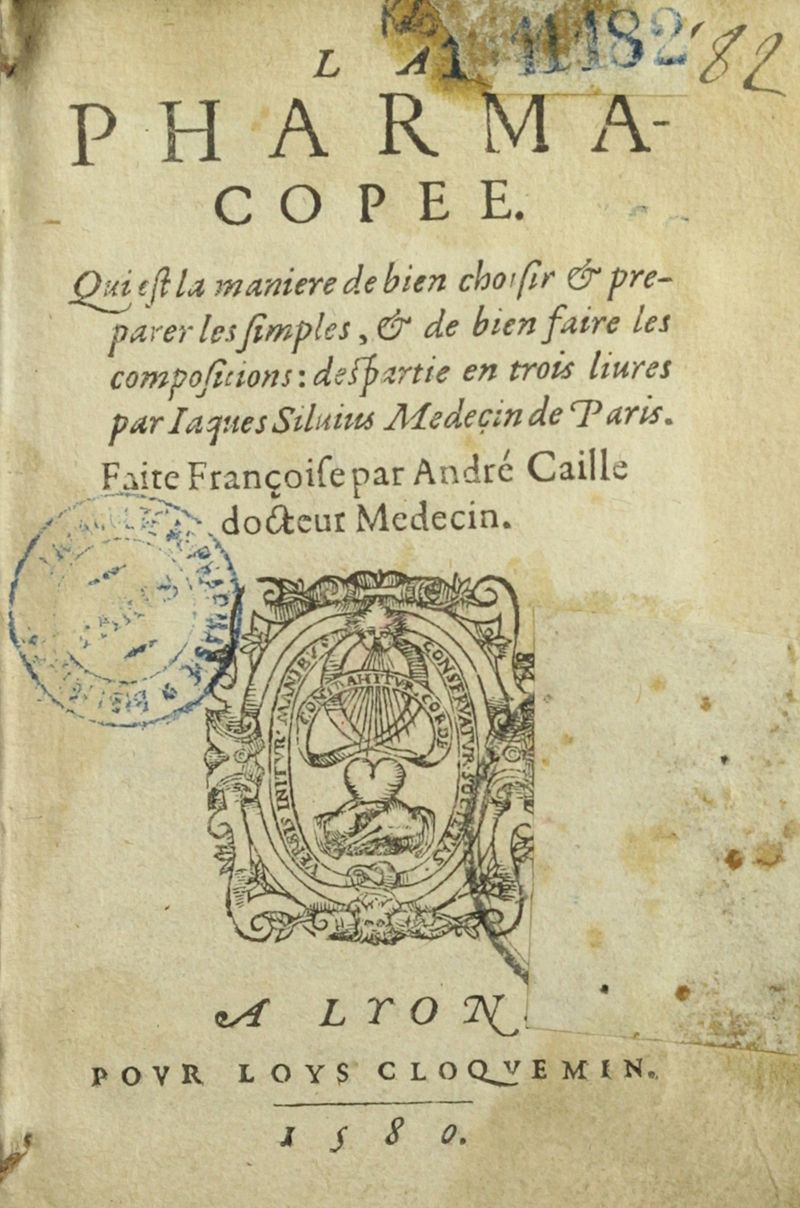 L A
11182
'82
PHARMA-
COPEE.
Qui eſt la maniere de bien choiſir & pre-
parer les ſimples, & de bien faire les
compoſitions: deſpartie en trois liures
par Iaques Siluius Medeçin de Paris.
Faite Françoiſe par André Caille
docteur Medecin.
VERSIS INITVR MANIBVS
CONSERVATVR
CONTRAHITVR CORDE
A LYON,
POVR LOYS CLOQVEMIN.
1580.